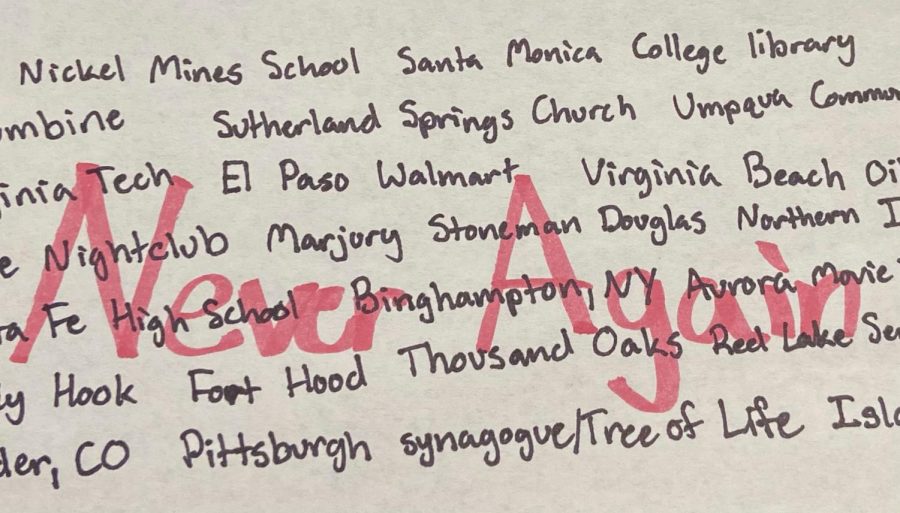 Nickel Mines School Santa Monica College library
umbine Sutherland Springs Church Umpqua Commun
ginia Tech El Paso Walmart Virginia Beach Oi
e Nightclub Marjory Stoneman Douglas Northern I
ta Fe High School Binghampton, NY Aurora Movie
Never Again
y Hook Fort Hood Thousand Oaks Red Lake Se
der, CO Pittsburgh synagogue/Tree of Life Isla